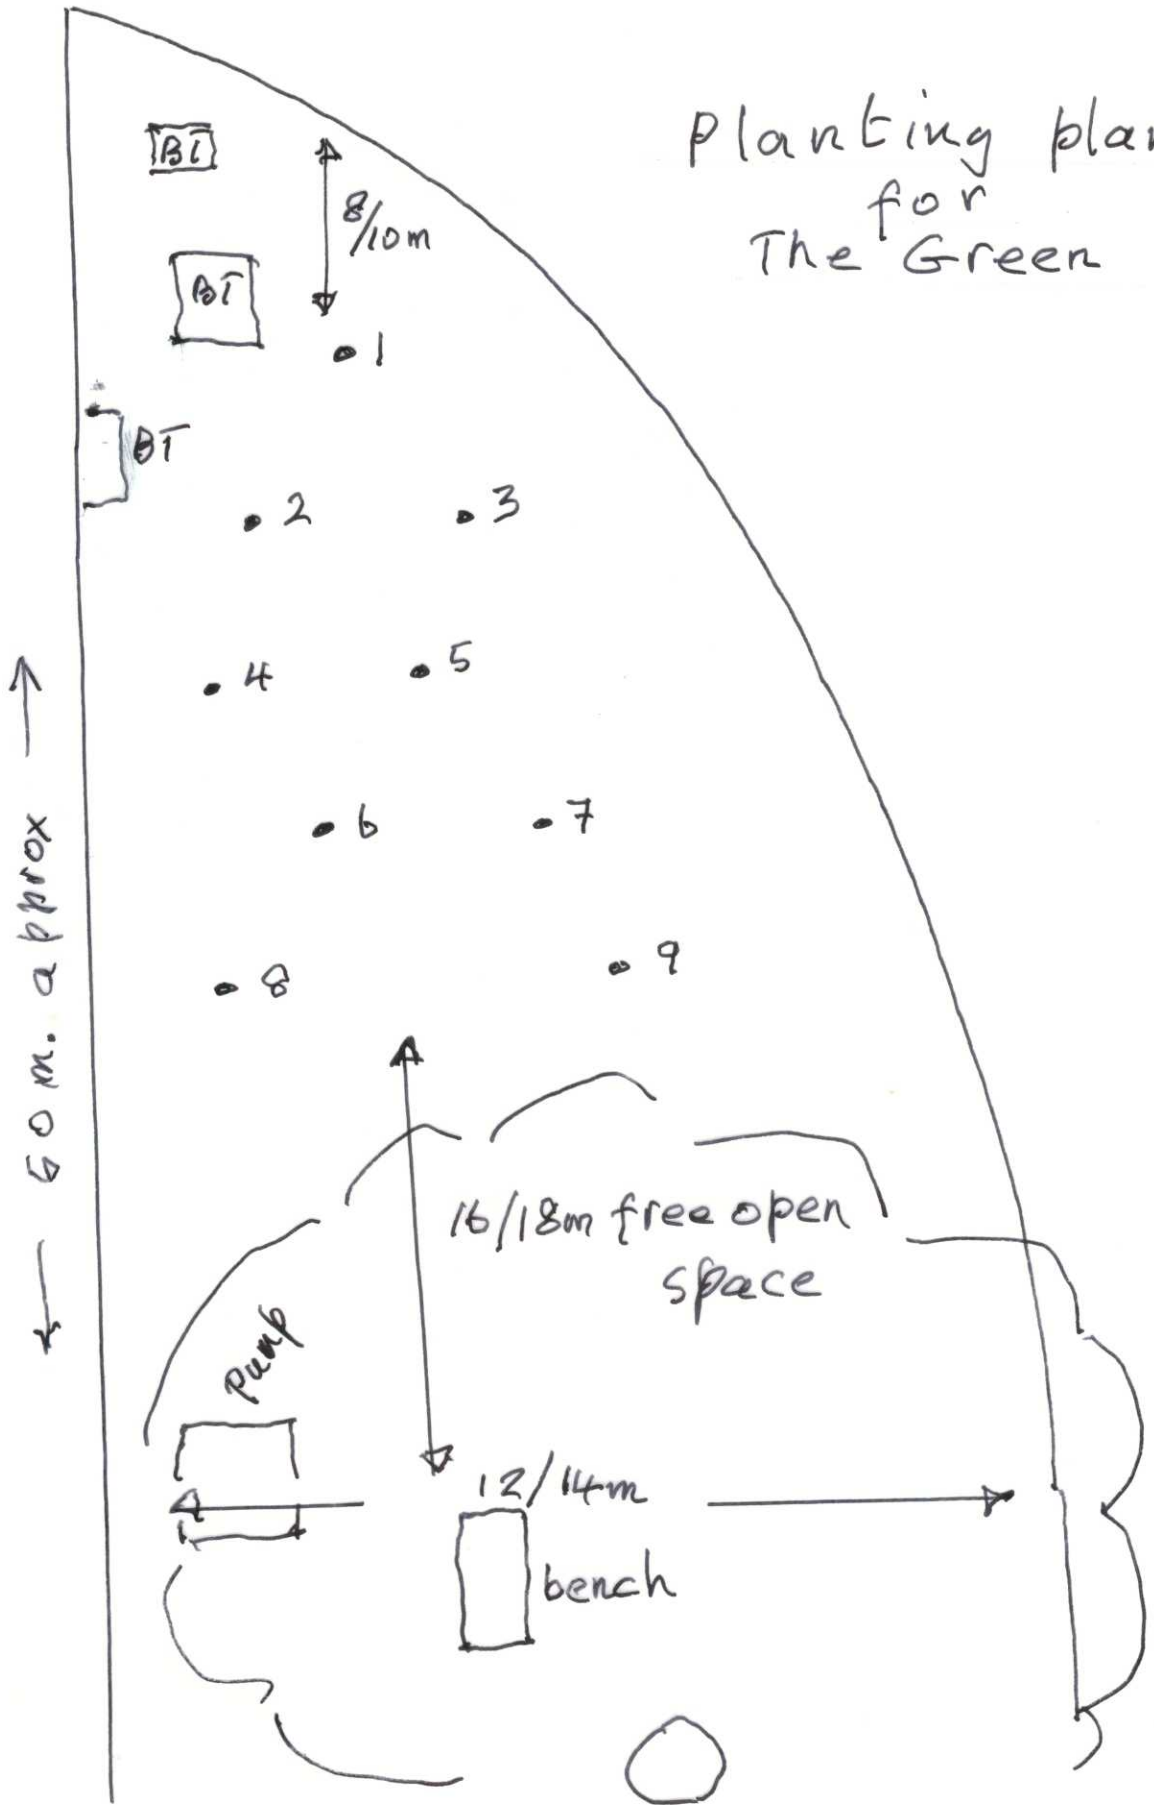 Planting plan
for
The Green
BT
8/10m
BT
1
BT
2
3
4
5
6
7
8
9
60 m. approx
16/18m free open
space
Pump
12/14m
bench